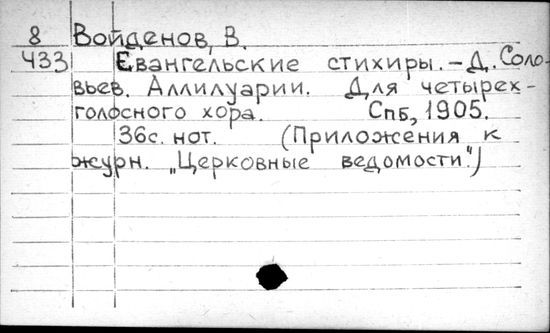 8 Войденов, В.
433 Евангельские стихиры. – Д. Соло-
вьев. Аллилуарии. Для четырех-
голосного хора. Спб, 1905.
36с. нот. (Приложения к
журн. „Церковные ведомости".)